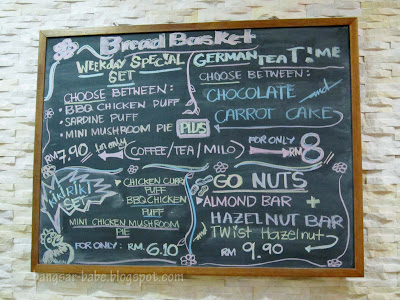 Bread Basket
WEEKday SPECIAL
SET
CHOOSE BETWEEN:
• BBQ CHICKEN PUFF
• SARDINE PUFF
• MINI MUSHROOM PIE
RM 7.90 for only
PLUS
(COFFEE/TEA/MILO)
GERMAN TEA TIME
CHOOSE BETWEEN:
CHOCOLATE and
CARROT CAKE
FOR ONLY
RM 8
SET
CHICKEN CURRY
PUFF
BBQ CHICKEN
PUFF
MINI CHICKEN MUSHROOM
PIE
FOR ONLY: RM. 6.10
GO NUTS
ALMOND BAR +
HAZELNUT BAR
TWist Hazelnut
RM 9.90
bangsar-babe.blogspot.com